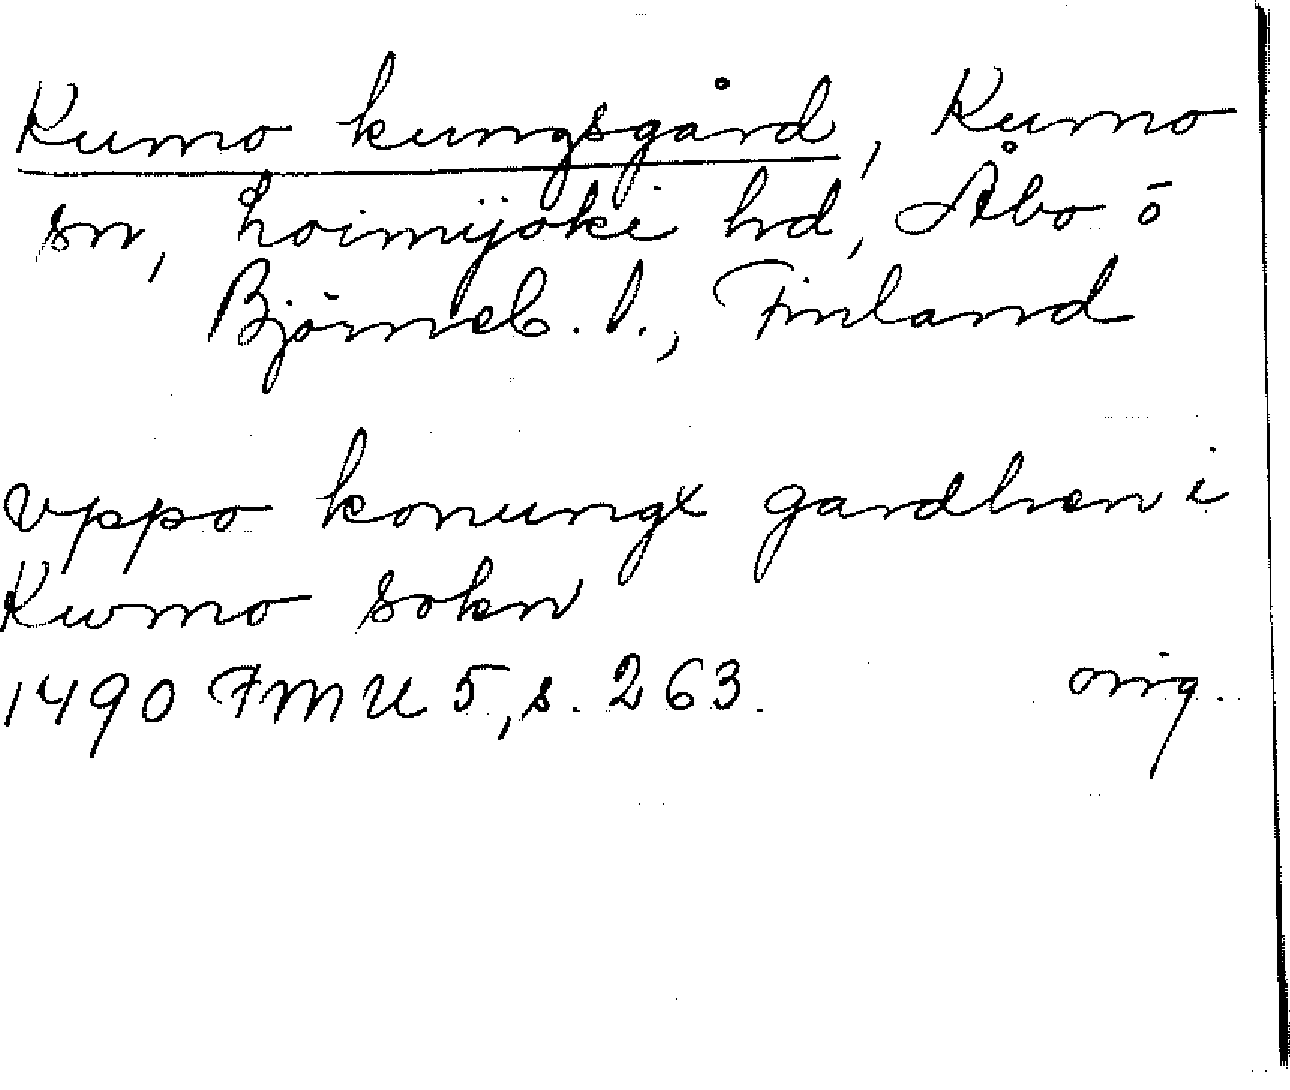 Kumo kungsgård, Kumo
sn, Loimijoki hd, Åbo o
Björneb. l., Finland
vppo konungx gardhen i
Kwmo sokn
1490 FMU 5, s. 263. orig.